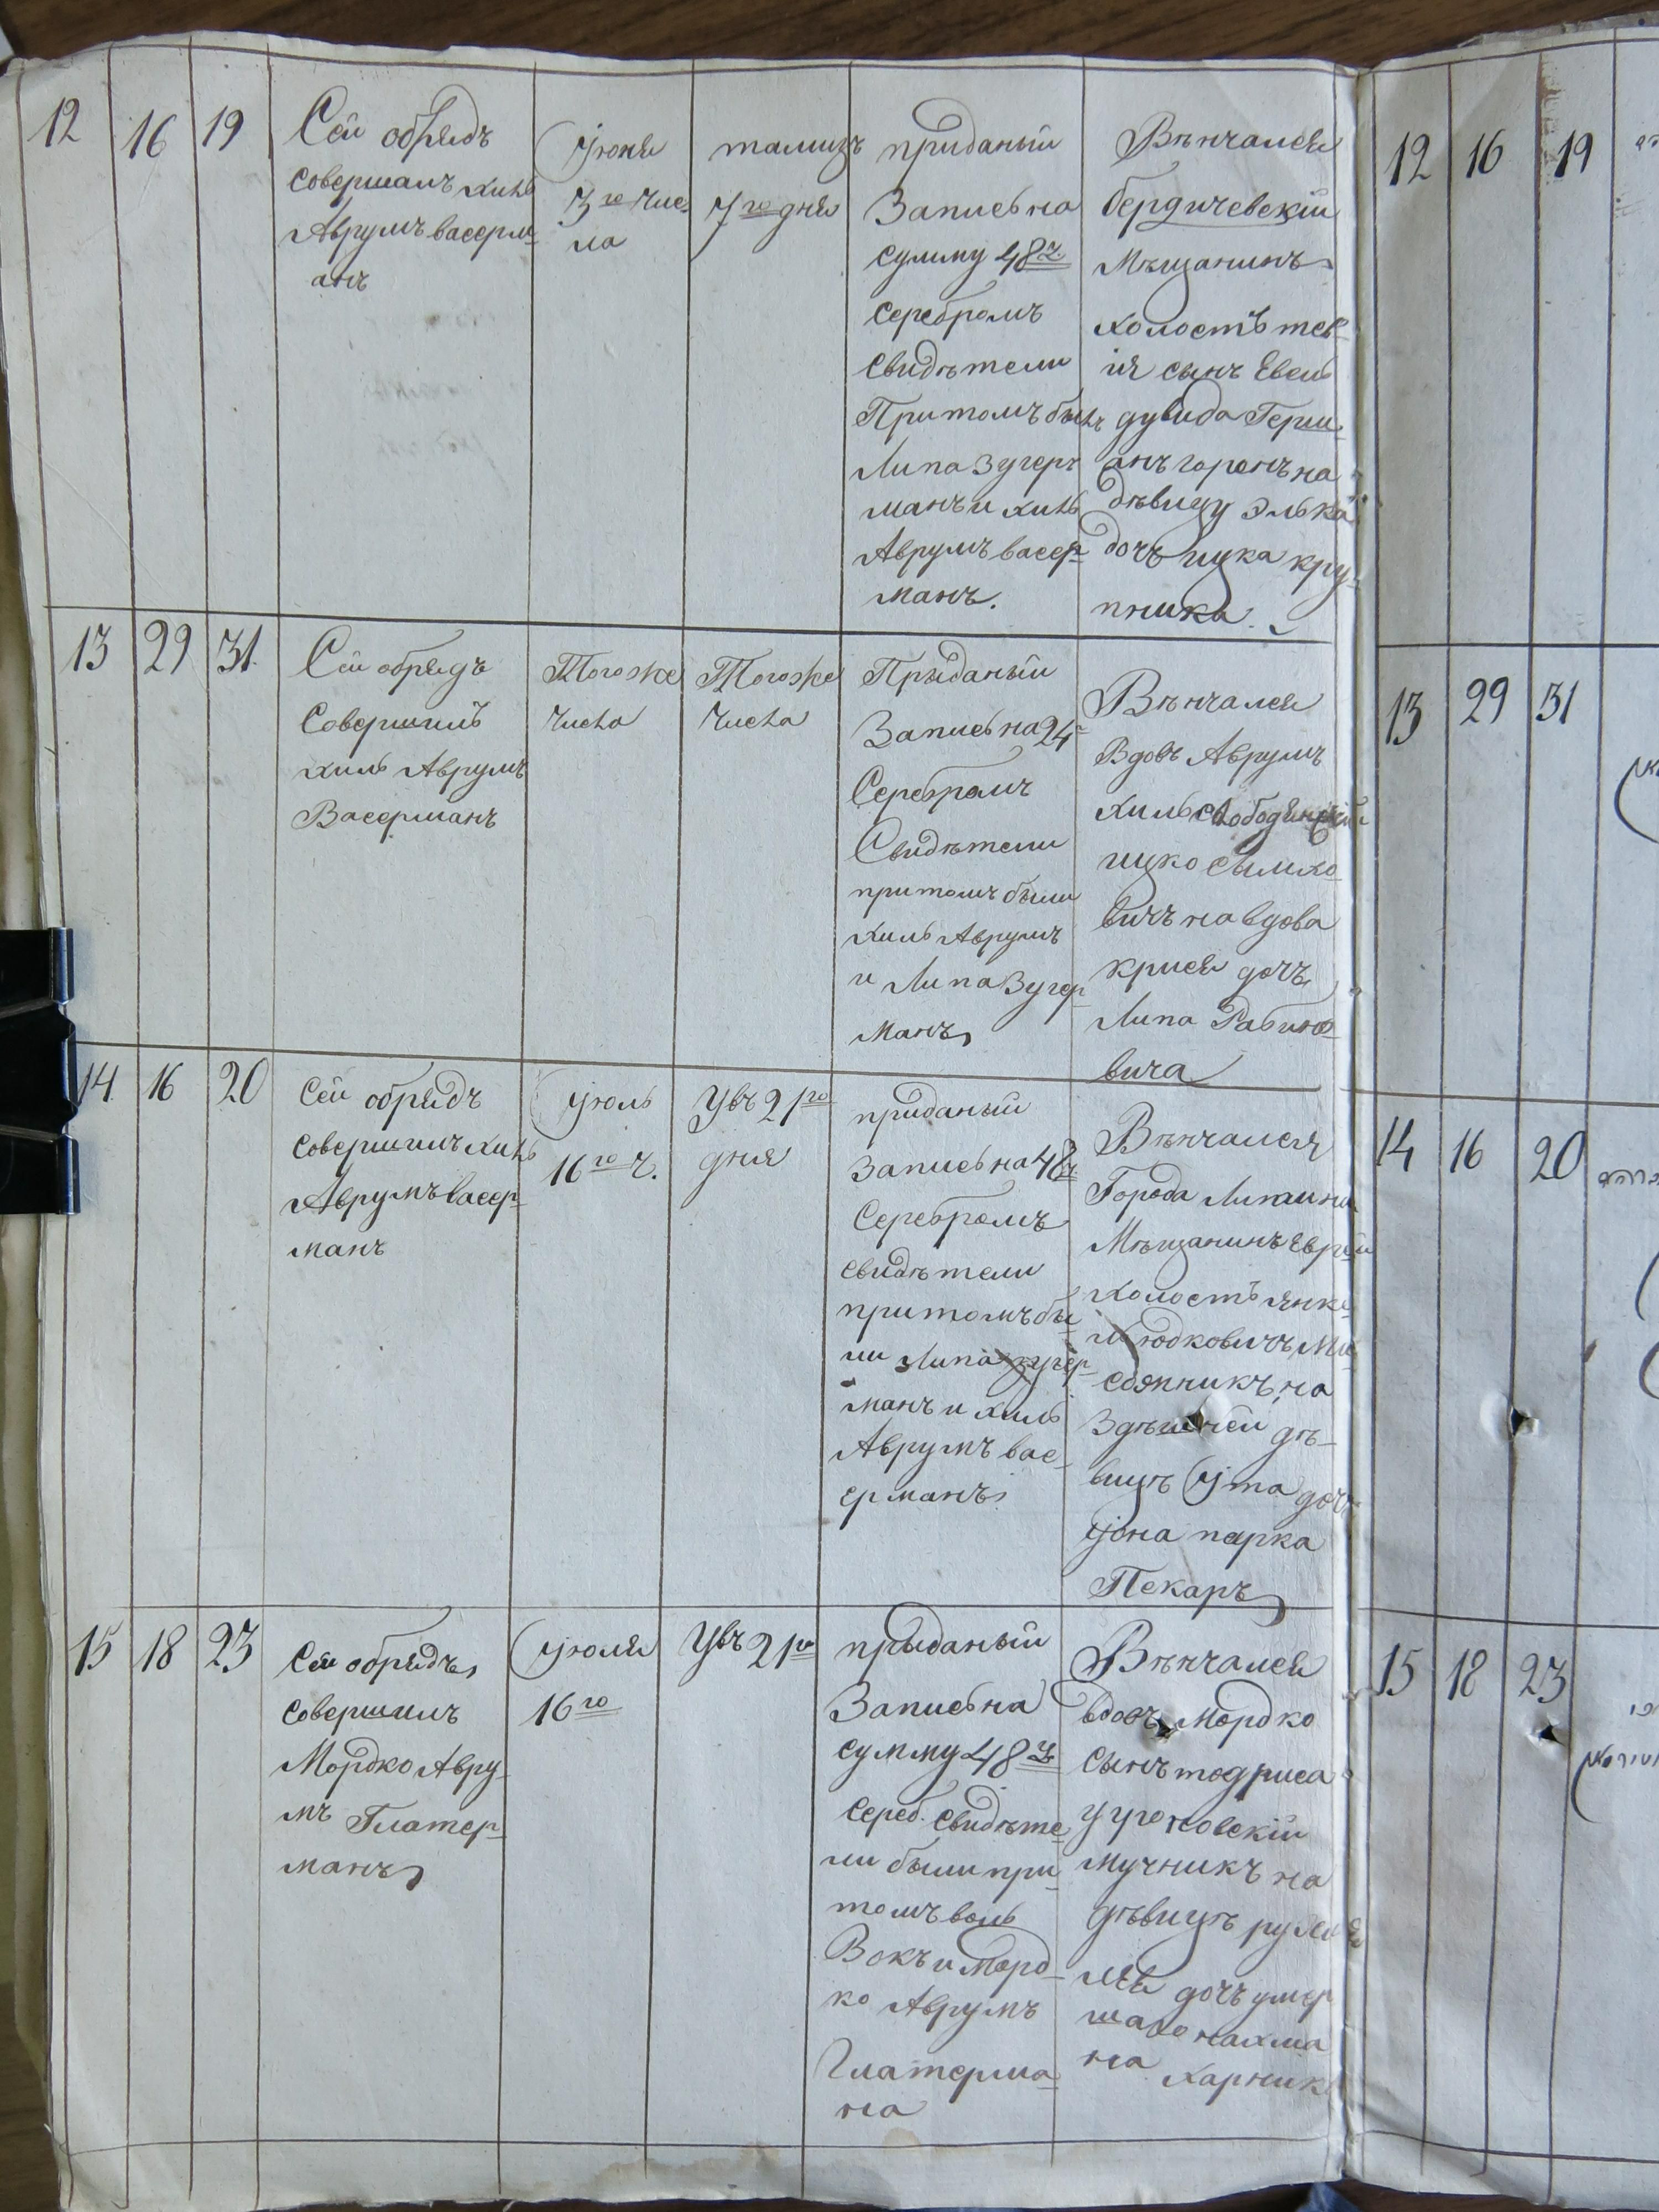 12
16
19
Сей обрядъ
совершалъ хиль
Аврумъ васерм-
анъ
Іюня
3го чис-
ла
тамизъ
7го дня
приданый
Запись на
сумму 48 ч.
серебромъ
свидѣтели
Притомъ былъ
Липа Зугер
манъ и хиль
Аврумъ васер-
манъ.
Вѣнчался
бердичевскій
Мѣщанинъ
холостъ тев-
ія сынъ Евсей
дувида Герш-
анъ горенъ на
дѣвицу Элька
дочъ ицка кру-
пника.
13
29
31.
Сей обрядъ
Совершилъ
хиль Аврумъ
Васерманъ
Тогоже
числа
Тогоже
числа
Прыданый
Запись на 24
Серебромъ
Свидѣтели
притомъ были
хиль Аврумъ
и Липа Зугер-
манъ
Вѣнчался
Вдовъ Аврумъ
хиль слободянскій
ицко Сымхо-
вичъ на вдова
крися дочъ
Липа Рабино-
вича
14.
16
20
Сей обрядъ
совершилъ хиль
Аврумъ васер-
манъ
Іюль
16го ч.
Увъ 21го
дня
приданый
Запись на 48 ч
Серебромъ
свидѣтели
притомъ бы-
ли Липа зугер-
манъ и хиль
Аврумъ вас-
ерманъ
Вѣнчался
Города Литина
Мѣщанинъ Еврей
холостъ янке-
л юдковичъ
на
здѣшней дѣ-
вицѣ Іта дочъ
іона парка
Пекаръ
15
18
23
Сей обрядъ
совершилъ
Мордко Авру-
мъ Глатер-
манъ
Іюля
16го
Увъ 21го
прыданый
Запись на
сумму 48 ч.
Сереб. свидѣте-
ли были при-
томъ воль
Вокъ и Морд-
ко Аврумъ
Глатерма-
на
Вѣнчался
вдовъ Мордко
сынъ тодриса
мучникъ на
дѣвицѣ рухля
лея дочъ умер
шаго нахма
на харник
12
16
19
13
29
31
14
16
20
15
18
23